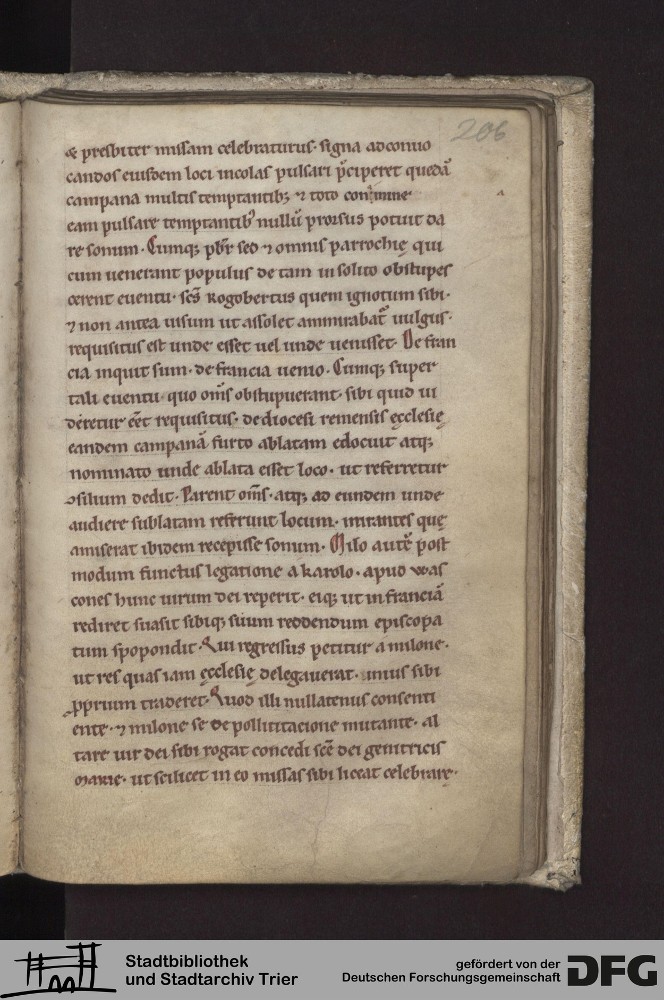 206
& presbiter missam celebraturus· signa adconuo
candos eiusdem loci incolas pulsari p̄ciperet quedā
campana multis temptantibꝫ ⁊ toto
eam pulsare temptantibꝰ nullū prorsus potuit da
re sonum· Cumqꝫ pbr̄ sed ⁊ omnis parrochię qui
cum uenerant populus de tam insolito obstupes
cerent euentu· scs̄ Rogobertus quem ignotum sibi·
⁊ non antea uisum ut assolet ammirabat᷑ uulgus·
requisitus est unde esset uel unde uenisset· De fran
cia inquit sum· de francia uenio· Cumqꝫ super
tali euentu· quo om̄s obstupuerant· sibi quid ui
deretur eēt requisitus· dediocesi remensis ęcclesię
eandem campanā furto ablatam edocuit atqꝫ
nominato unde ablata esset loco· ut referretur
ↄsilium dedit· Parent om̄s· atqꝫ ad eundem unde
audiere sublatam referunt locum· mirantes quę
amiserat ibidem recepisse sonum· Milo autē post
modum functus legatione a karolo· apud was
cones hunc uirum dei reperit· eiqꝫ ut in franciā
rediret suasit sibiqꝫ suum reddendum episcopa
tum spopondit· Qui regressus petitur a milone·
ut res quas iam ęcclesię delegauerat· unius sibi
ꝓprium traderet· Quod illi nullatenus consenti
ente· ⁊ milone se de pollicitacione mutante· al
tare uir dei sibi rogat concedi scē dei genitricis
MARIE· ut scilicet in eo missas sibi liceat celebrarę·
Stadtbibliothek
und Stadtarchiv Trier
gefördert von der
Deutschen Forschungsgemeinschaft
DFG